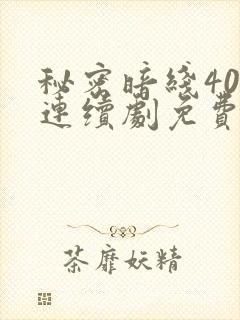 秘密暗綫40
連續劇免費
荼靡妖精